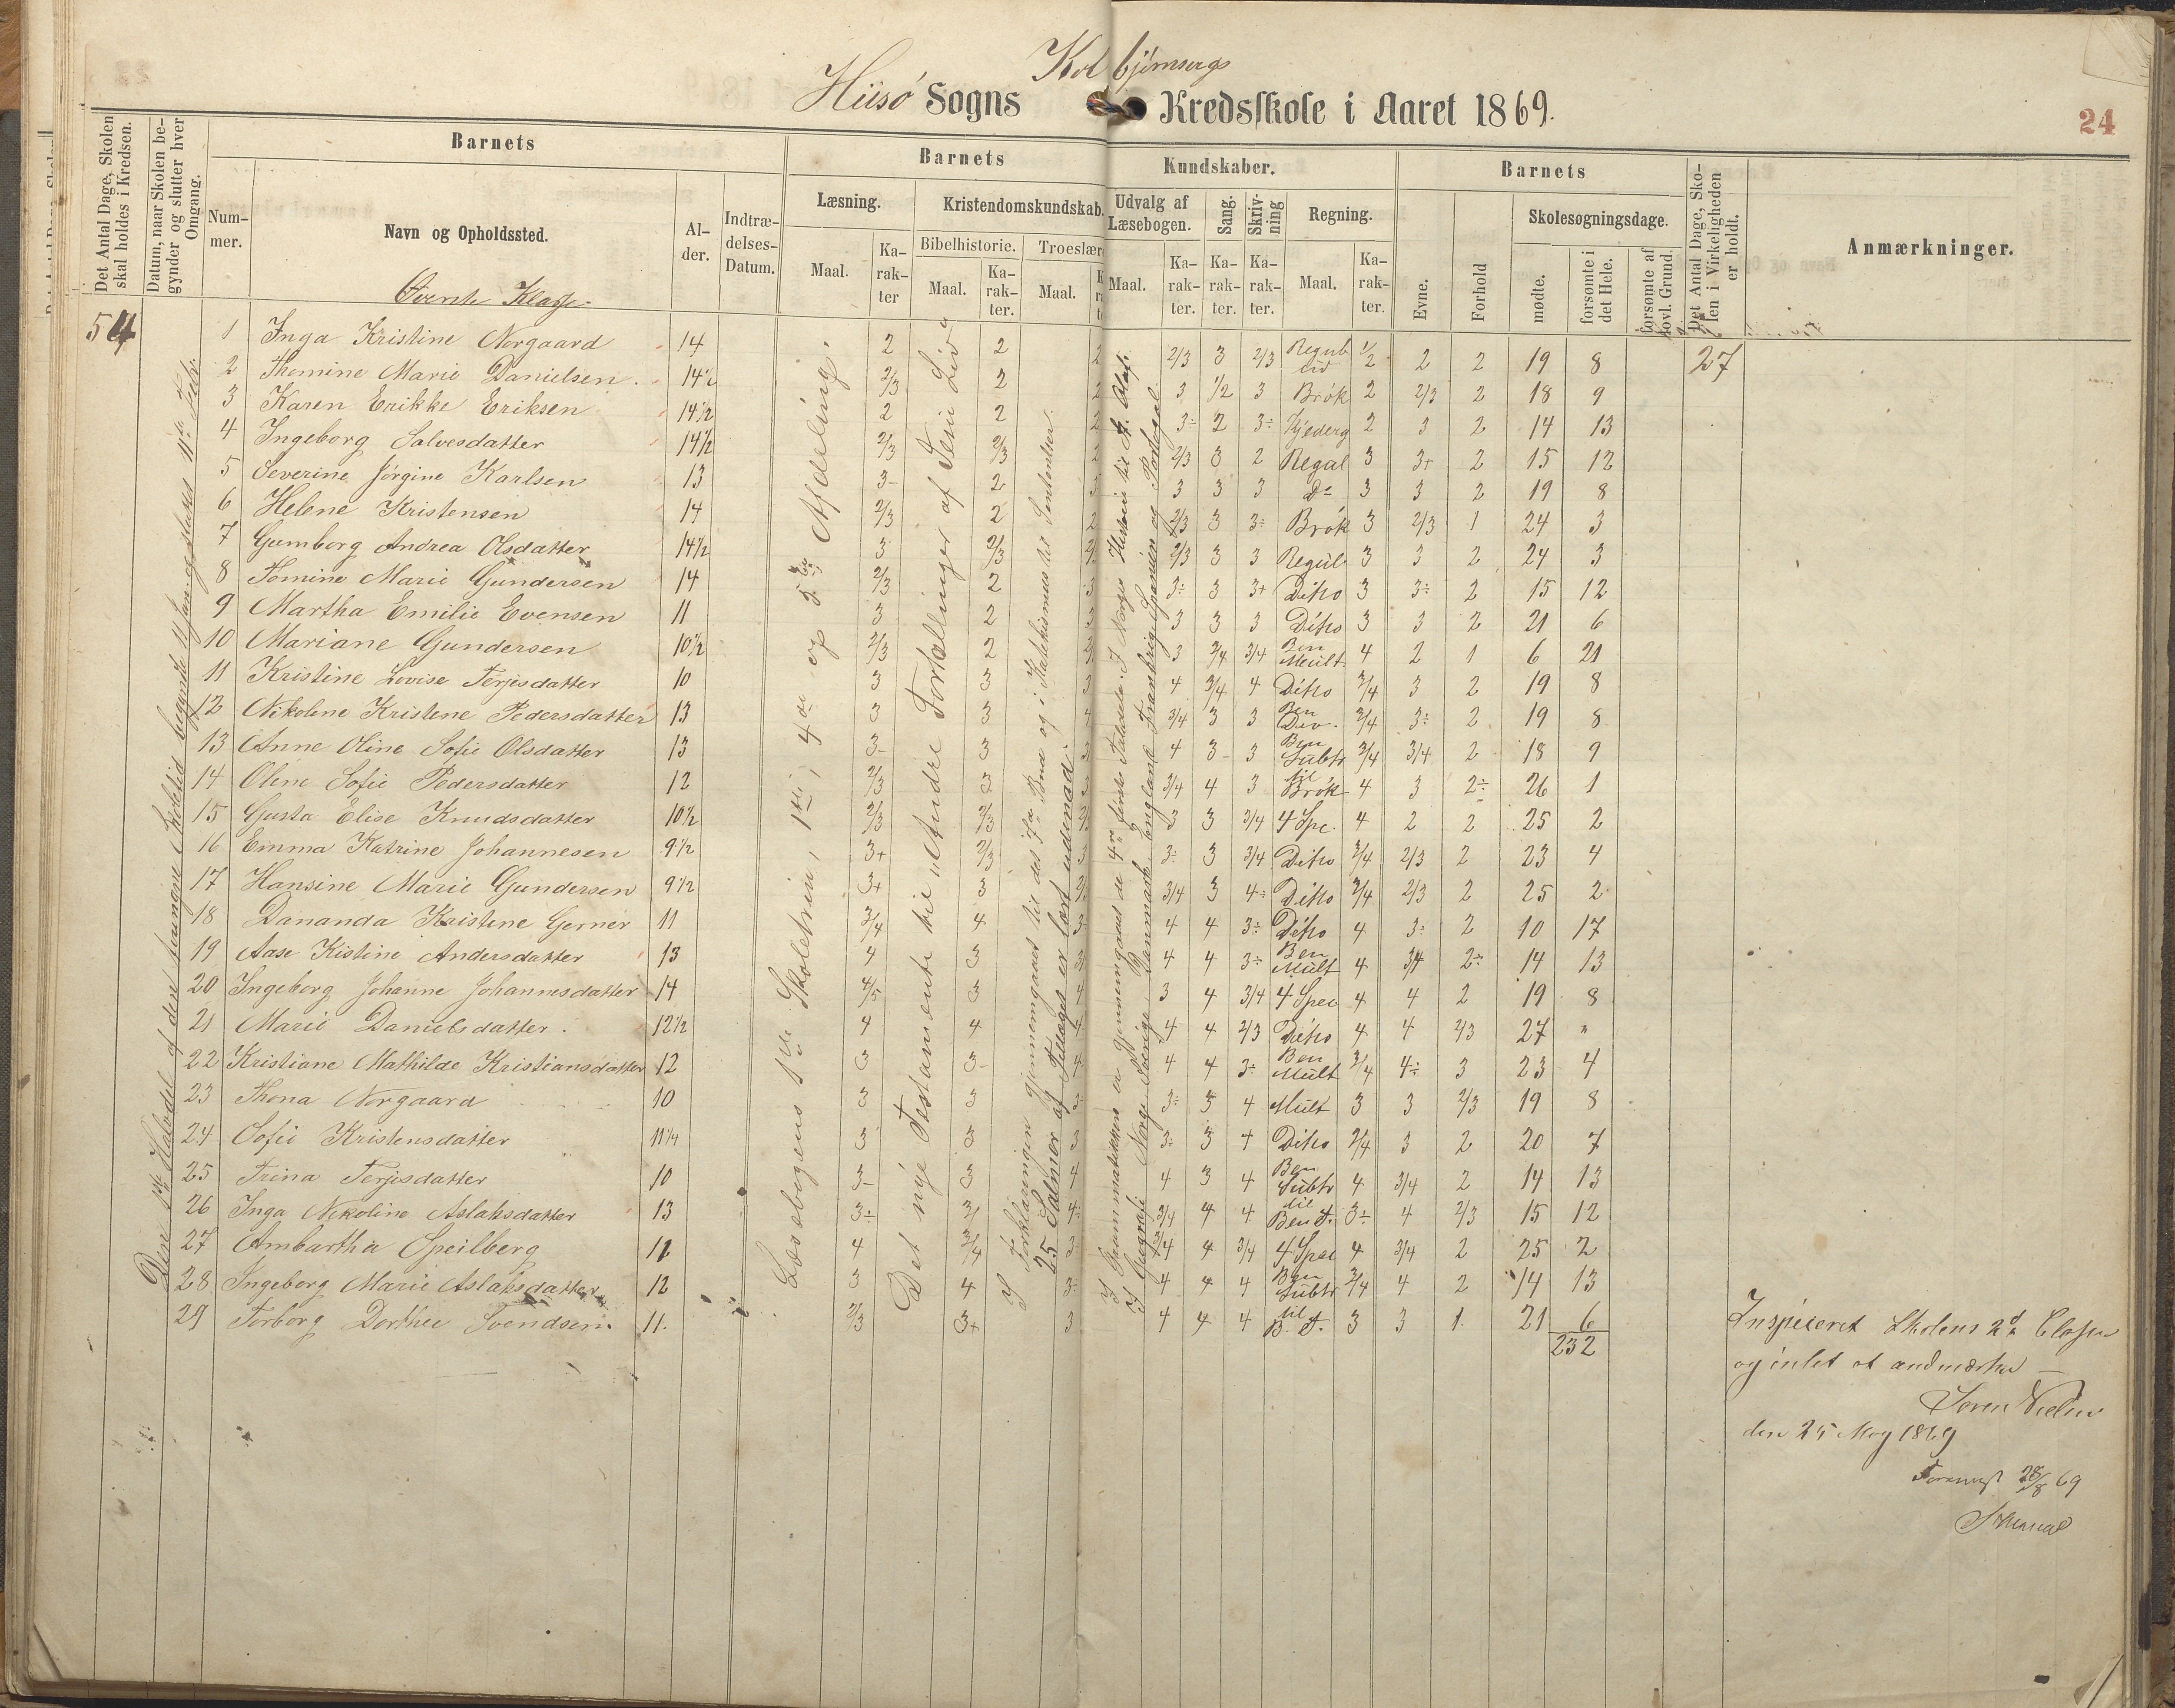 Kolbjörnsvigs
Hiisö Sogns Kredsskole i Aaret 1869.
24
Det Antal Dage, Skolen skal holdes i Kredsen.
Datum, naar Skolen begynder og slutter hver Omgang.
Barnets
Nummer.
Navn og Opholdssted.
Alder.
Indtrædelses-Datum.
Barnets Kundskaber.
Læsning.
Maal.
Karakter
Kristendomskundskab.
Bibelhistorie.
Maal.
Karakter.
Troeslære
Maal.
Udvalg af Læsebogen.
Maal.
Karakter.
Sang.
Karakter.
Skrivning
Karakter.
Regning.
Maal.
Karakter.
Barnets
Evne.
Forhold
Skolesøgningsdage.
mødte.
forsømte i det Hele.
forsømte af lovl. Grund.
Det Antal Dage, Skolen i Virkeligheden er holdt.
Anmærkninger.
Överste Klasse.
54
1 Inga Kristine Norgaard 14 2 2 2 2/3 3 2/3 1/2 2 2 19 8 27
2 Thomine Marie Danielsen. 14½ 2/3 2 2 3 1/2 3 Brök 2 2/3 2 18 9
3 Karen Erikke Eriksen 14½ 2 2 2 3÷ 2 3÷ 2 3 2 14 13
4 Ingeborg Salvesdatter 14½ 2/3 2/3 2 2/3 3 2 Regul 3 3+ 2 15 12
5 Severine Jörgine Karlsen 13 3- 2 3 3 3 3 Do 3 3 2 19 8
6 Helene Kristensen 14 2/3 2 2 2/3 3 3÷ Brök 3 2/3 1 24 3
7 Gumborg Andrea Olsdatter 14½ 3 2/3 2/3 3 3 Regul 3 3 2 24 3
8 Tomine Marie Gundersen 14 2/3 2 3 3÷ 3 3+ Ditto 3 3÷ 2 15 12
9 Martha Emilie Evensen 11 3 2 3 3 3 3 Ditto 3 3 2 21 6
10 Mariane Gundersen 10½ 2/3 2 3 3/4 3/4 Ben Mult 4 2 1 6 21
11 Kristine Lovise Terjesdatter 10 3 3 3 4 3/4 4 Ditto 3/4 3 2 19 8
12 Nikoline Kristene Pedersdatter 13 3 3 4 3/4 3 3 Ben Div. 3/4 3÷ 2 19 8
13 Anne Oline Sofie Olsdatter 13 3- 3 3 4 3- 3 Ben Subtr 3/4 3/4 2 18 9
14 Oline Sofie Pedersdatter 12 2/3 3 3 3/4 4 3 til Brök 4 3 2÷ 26 1
15 Gusta Elise Knudsdatter 10½ 2/3 2/3 3 3 3/4 4 Spe. 4 2 2 25 2
16 Emma Katrine Johannesen 9½ 3+ 2/3 3 3÷ 3 3/4 Ditto 3/4 2/3 2 23 4
17 Hansine Marie Gundersen 9½ 3+ 3 3/4 3 4÷ Ditto 3/4 2/3 2 25 2
18 Dananda Kristene Gerner 11 3/4 4 3 4 4 3÷ Ditto 4 3÷ 2 10 17
19 Aase Kistine Andersdatter 13 4 3 4 4 3÷ Ben Mult 4 3/4 2÷ 14 13
20 Ingeborg Johanne Johannesdatter 14 4/5 3 4 3 4 3/4 4 Spec 4 4 2 19 8
21 Marie Danielsdatter. 12½ 4 4 4 4 4 2/3 Ditto 4 4 2/3 27 "
22 Kristiane Mathilde Kristiansdatter 12 3 3- 4 4 4 3÷ Ben Mult 3/4 4÷ 3 23 4
23 Thona Norgaard 10 3 3 3÷ 3 4 Mult 3 3 2/3 19 8
24 Sofie Kristensdatter 11¼ 3 3 3 3÷ 3 4 Ditto 3/4 3 2 20 7
25 Trina Terjesdatter 10 3- 3 4 4 3 4 Ben Subtr 4 3/4 2 14 13
26 Inga Nikoline Aslaksdatter 13 3÷ 4 3/4 4 4 til Ben F. 3÷ 4 2/3 15 12
27 Ambartha Speilberg 11 4 3/4 3 3/4 4 3/4 4 Spec 4 3/4 2 25 2
28 Ingeborg Marie Aslaksdatter 12 3 4 3 4 4 4 Ben Subtr 3/4 4 2 14 13
29 Torborg Dorthee Svendsen. 11. 2/3 3+ 3 4 4 4 til B. F. 3 3 1 21 6
232
Den 1ste Halvdel af den tvungne Skoletid begyndte 11 Jan. og sluttet 11te Febr.
Læsebogens 1ste Skoletrin, 1ste, 4de og 5te Afdeling.
Det nye Testamente til "Andre Fortællinger af Jesu Liv"
I Forklaringen gjennemgaaet til det 7de Bud og i Katekismus til Sententser.
25 Salmer af Tillæget er lært udenad.
I Grammatikken er gjennemgaaet de 4re første Taledele. I Norges Historie til H. Olaf.
I Geografi Norge, Sverige, Danmark, England, Frankrig, Spanien og Portogal.
Inspiseret Skolens 2d Classe
og intet at andmærke —
Søren Nielsen
den 25 May 1869
28/8 69